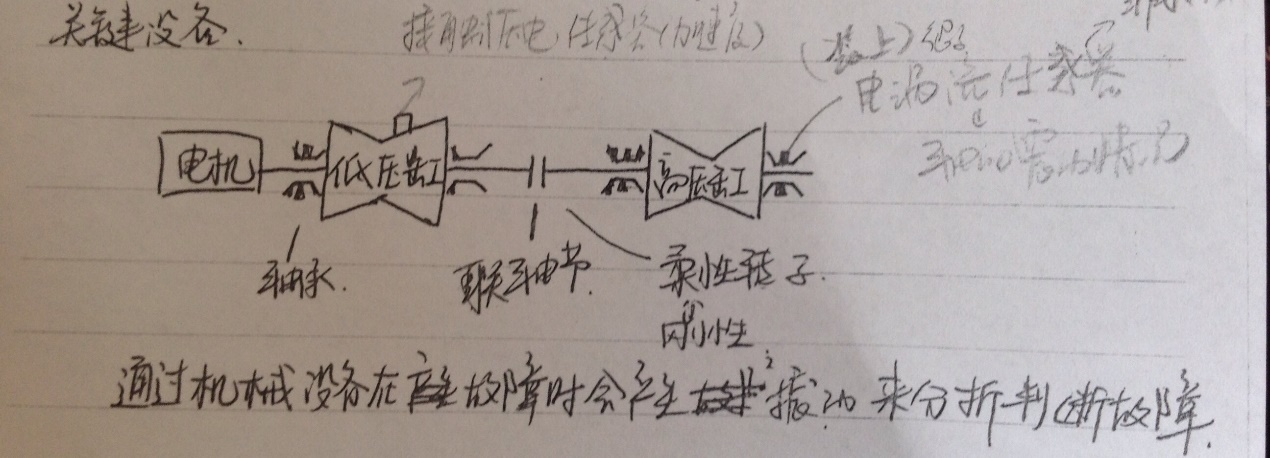 关键设备.
接触式压电传感器(加速度)
(装上)
电涡流传感器
电机
低压缸
高压缸
轴承.
联轴节.
柔性转子.
刚性
通过机械设备在故障时会产生振动来分折判断故障.